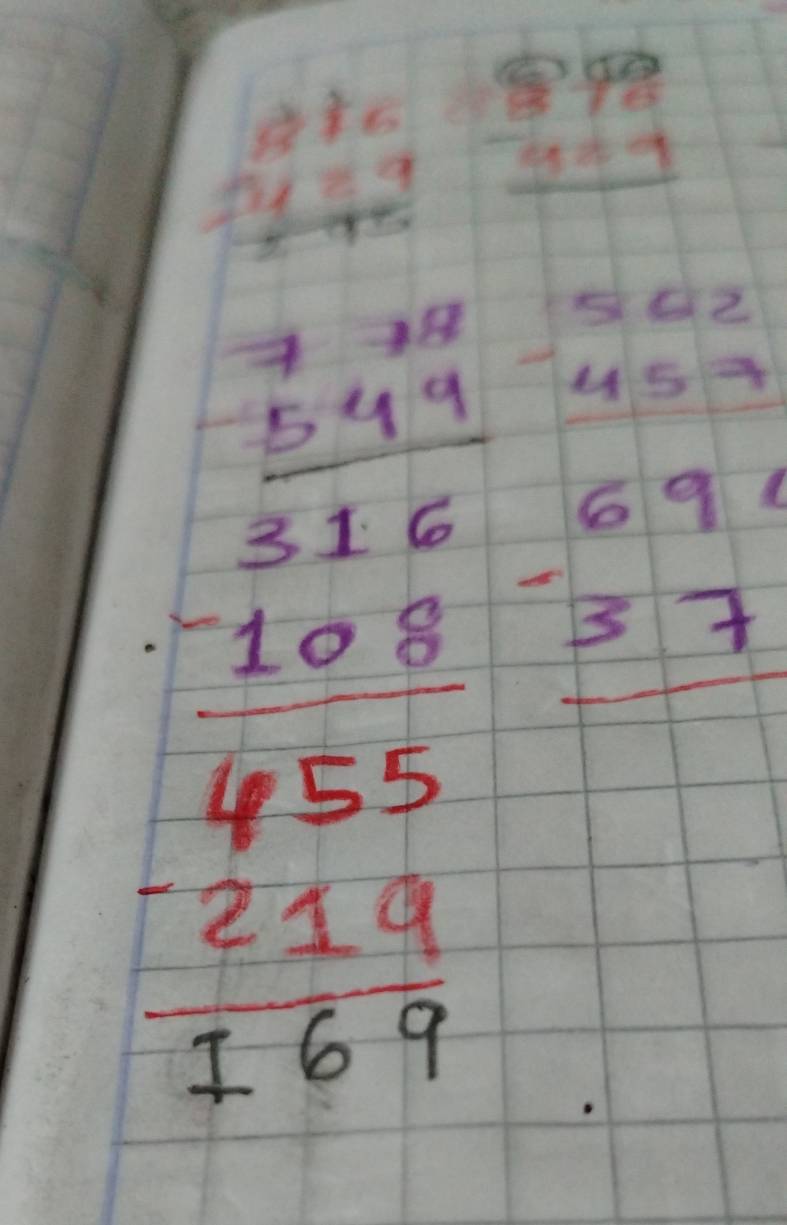 876 876
- 429 - 429
778 - 562
- 549 457
316 69
- 108 - 37
455
- 219
169